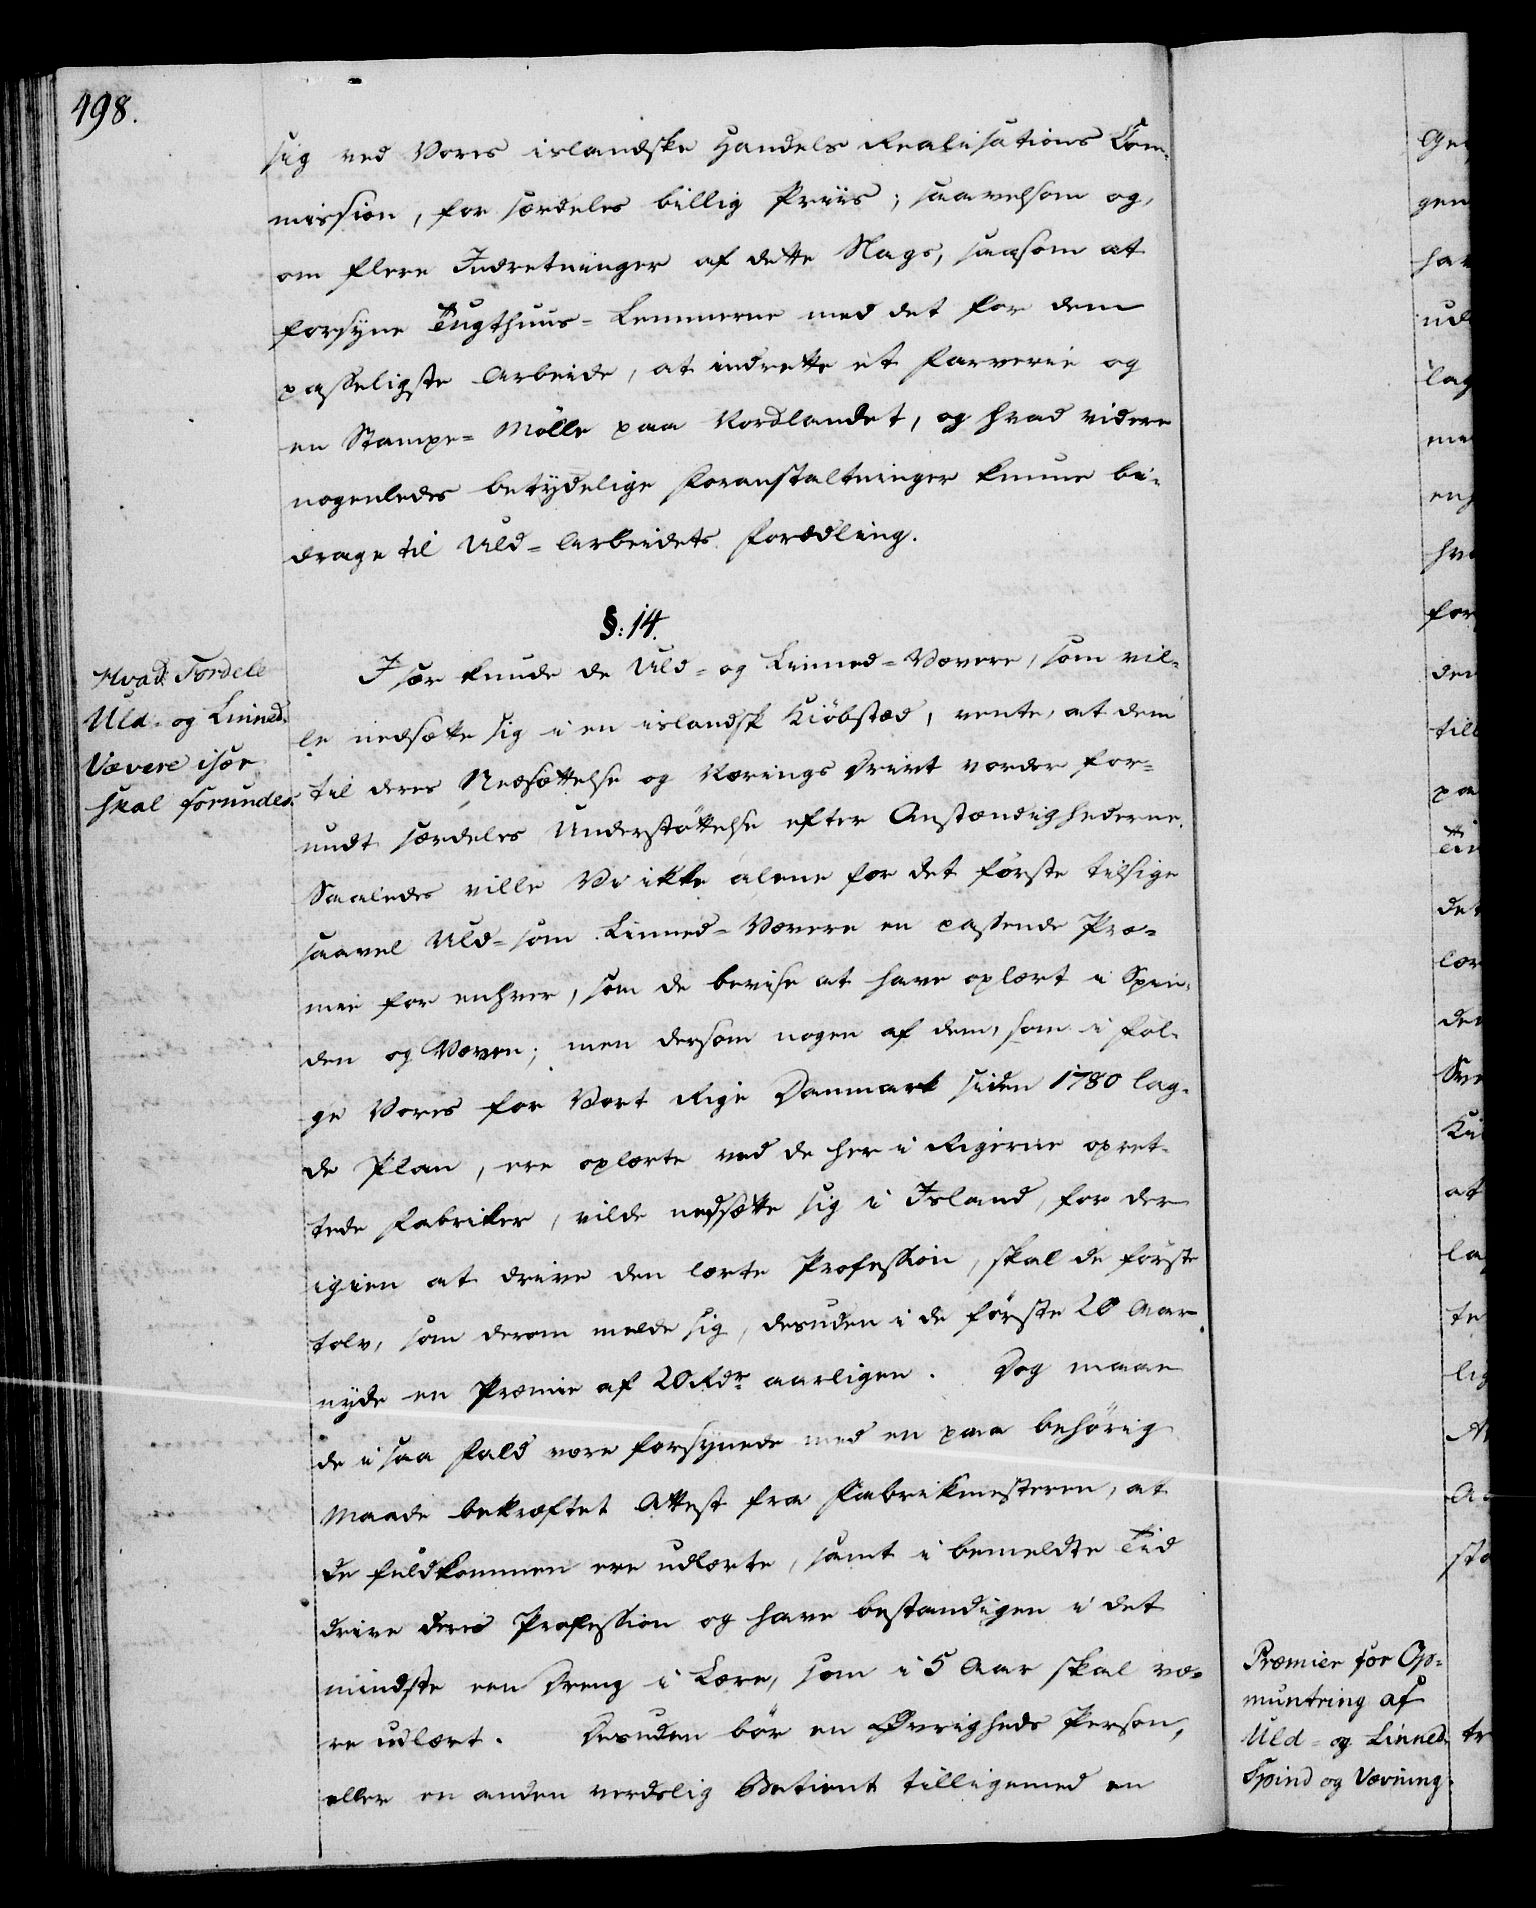 498.
sig ved Vores islandske Handels Realisations Com-
mission, for særdeles billig Priis; saavelsom og,
om flere Indretninger af dette Slags, saasom at
forsyne Tugthuus-Lemmerne med det for dem
passeligste Arbeide, at indrette et Farverie og
en Stampe-Mølle paa Nordlandet, og hvad videre
nogenledes betydelige Foranstaltninger kunne bi-
drage til Uld-Arbeidets Forædling.
§: 14.
Hvad Fordele
Uld- og Linned-
Vævere især
skal forundes.
Især kunde de Uld- og Linned-Vævere, som vil-
le nedsætte sig i en islandsk Kiöbstæd, vente, at dem
til deres Nedsættelse og Nærings Drivt vorder for-
undt særdeles Understöttelse efter Omstændighederne.
Saaledes ville Vi ikke alene for det förste tilsige
saavel Uld- som Linned-Vævere en passende Præ-
mie for enhver, som de bevise at have oplært i Spin-
den og Væven; men dersom nogen af dem, som i Föl-
ge Vores for Vort Rige Danmark siden 1780 lag-
de Plan, ere oplærte ved de her i Rigerne opret-
tede Fabriker, vilde nedsætte sig i Island, for der
igien at drive den lærte Profession, skal de förste
tolv, som derom melde sig, desuden i de förste 20 Aar
nyde en Præmie af 20 Rdr aarligen. Dog maae
de i saa Fald være forsynede med en paa behörig
Maade bekræftet Attest fra Fabrikmesteren, at
de fuldkommen ere udlærte, samt i bemeldte Tid
drive deres Profession og have bestandigen i det
mindste een Dreng i Lære, som i 5 Aar skal væ-
re udlært. Desuden bör en Övrigheds Person,
eller en anden verdslig Betient tilligemed en
Præmier for Op-
muntring af
Uld- og Linned-
Spind og Vævning.